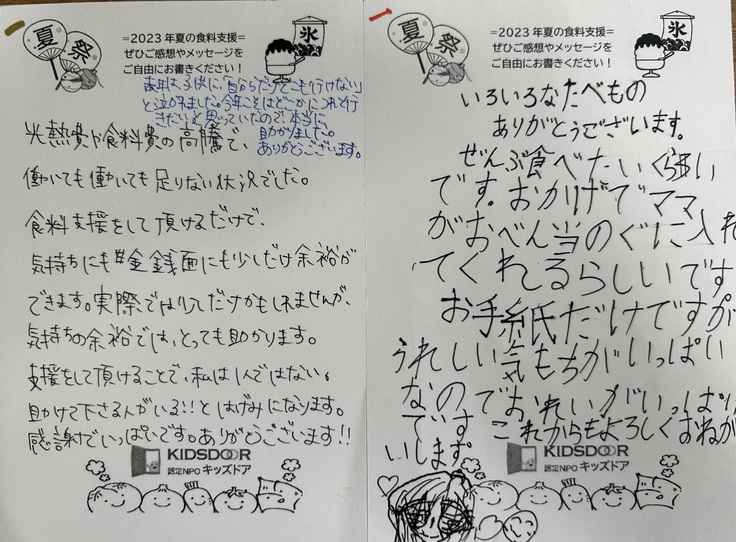 夏祭
=2023年夏の食料支援=
ぜひご感想やメッセージを
ご自由にお書きください!
氷
去年は、子供に、「自分だけどこも行けない」
と泣かれました。今年こそはどこかにつれて行
きたいと思っていたので、本当に
助かりました。
ありがとうございます。
光熱費や食料費の高騰で、
働いても働いても足りない状況でした。
食料支援をして頂けるだけで、
気持ちにも金銭面にも少しだけ余裕が
できます。実際では少しだけかもしれませんが、
気持ちの余裕では、とっても助かります。
支援をして頂けることで、私は1人ではない。
助けて下さる人がいる!!とはげみになります。
感謝でいっぱいです。ありがとうございます!!
KIDSDOOR
認定NPO キッズドア
夏祭
=2023年夏の食料支援=
ぜひご感想やメッセージを
ご自由にお書きください!
氷
いろいろなたべもの
ありがとうございます。
ぜんぶ食べたいくらい
です。おかげでママ
がおべん当のぐに入れ
てくれるらしいです
お手紙だけですが
うれしい気もちがいっぱい
なのでおれいがいっぱい
です これからもよろしくおねが
いします。
KIDSDOOR
認定NPO キッズドア